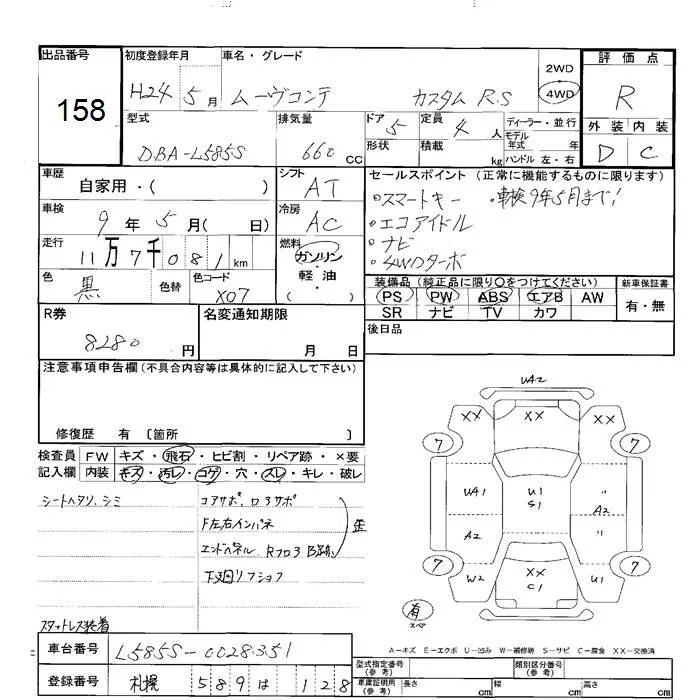 出品番号 158
初度登録年月 H24 5月
車名・グレード ムーヴコンテ カスタム R.S
2WD
4WD
評価点 R
外装 内装
D C
型式 DBA-L585S
排気量 660 CC
ドア 5
形状
定員 4 人
積載 kg
ディーラー・並行
モデル年式 年
ハンドル 左・右
車歴 自家用・( )
シフト AT
セールスポイント (正常に機能するものに限ります)
・スマートキー ・車検9年5月まで!
・エコアイドル
・ナビ
・4WDターボ
車検 9年 5月( 日)
冷房 AC
走行 11万7千081km
燃料 ガソリン・軽油
( )
色 黒 色替 色コード X07
装備品 (純正品に限り○をつけてください) 新車保証書
PS PW ABS エアB AW 有・無
SR ナビ TV カワ
後日品
R券 8280 円
名変通知期限 月 日
注意事項申告欄 (不具合内容等は具体的に記入して下さい)
修復歴 有 〔箇所 〕
検査員記入欄
FW キズ・飛石・ヒビ割・リペア跡・×要
内装 キズ・汚レ・コゲ・穴・スレ・キレ・破レ
シートヘタリ、シミ
コアサポ、ロアサポ
F左右インパネ
エンドパネル、Rフロア B跡 歪
下廻リフショフ
スタットレス装着
UA2
XX XX XX
7 7
UA1 U1 S1 〃
A2 A2 〃
7 7
W2 XX C1 U1
有
スペア
A-キズ E-エクボ U-凹み W-補修跡 S-サビ C-腐食 XX-交換済
車台番号 L585S-0028351
型式指定番号(参考) 類別区分番号(参考)
登録番号 札幌 589 は 128
車庫証明用(参考) 長さ cm 幅 cm 高さ cm